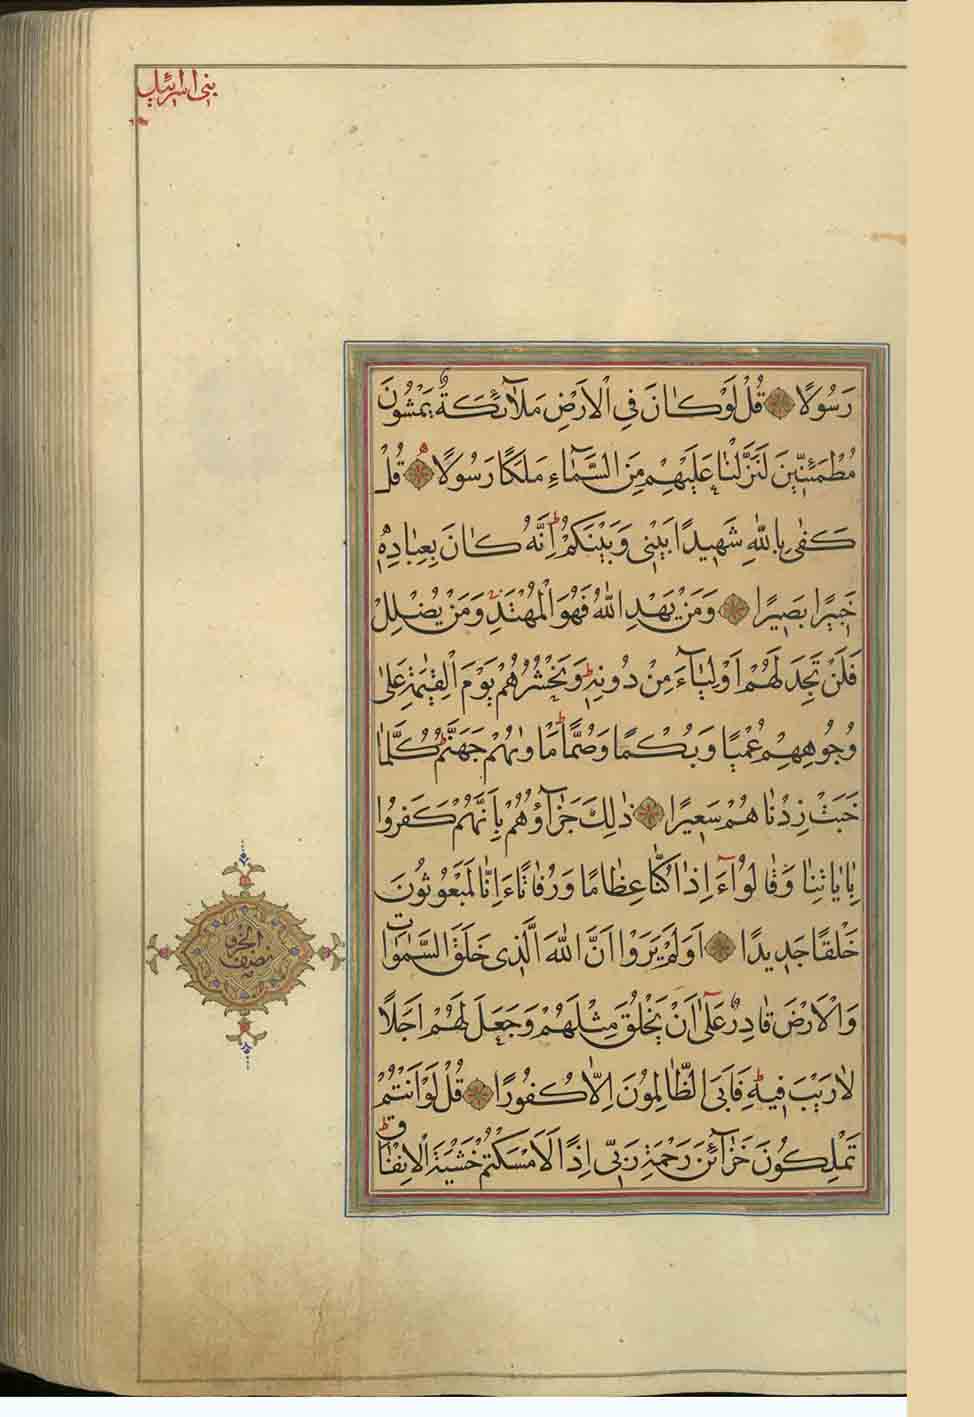 بنی اسرائیل
رَسُولًا قُلْ لَوْ كَانَ فِي الْاَرْضِ مَلٰٓائِكَةٌ يَمْشُونَ
مُطْمَئِنّٖينَ لَنَزَّلْنَا عَلَيْهِمْ مِنَ السَّمَٓاءِ مَلَكًا رَسُولًا قُلْ
كَفٰى بِاللّٰهِ شَهٖيدًا بَيْنٖى وَبَيْنَكُمْ اِنَّهُ كَانَ بِعِبَادِهٖ
خَبٖيرًا بَصٖيرًا وَمَنْ يَهْدِ اللّٰهُ فَهُوَ الْمُهْتَدِ وَمَنْ يُضْلِلْ
فَلَنْ تَجِدَ لَهُمْ اَوْلِيَٓاءَ مِنْ دُونِهٖ وَنَحْشُرُهُمْ يَوْمَ الْقِيٰمَةِ عَلٰى
وُجُوهِهِمْ عُمْيًا وَبُكْمًا وَصُمًّا مَاْوٰيهُمْ جَهَنَّمُ كُلَّمَا
خَبَتْ زِدْنَاهُمْ سَعٖيرًا ذٰلِكَ جَزَٓاؤُهُمْ بِاَنَّهُمْ كَفَرُوا
بِاٰيَاتِنَا وَقَالُٓوا ءَاِذَا كُنَّا عِظَامًا وَرُفَاتًا ءَاِنَّا لَمَبْعُوثُونَ
خَلْقًا جَدٖيدًا اَوَلَمْ يَرَوْا اَنَّ اللّٰهَ الَّذٖى خَلَقَ السَّمٰوَاتِ
وَالْاَرْضَ قَادِرٌ عَلٰٓى اَنْ يَخْلُقَ مِثْلَهُمْ وَجَعَلَ لَهُمْ اَجَلًا
لَا رَيْبَ فٖيهِ فَاَبَى الظَّالِمُونَ اِلَّا كُفُورًا قُلْ لَوْ اَنْتُمْ
تَمْلِكُونَ خَزَٓائِنَ رَحْمَةِ رَبّٖى اِذًا لَاَمْسَكْتُمْ خَشْيَةَ الْاِنْفَاقِ
نصف الحزب